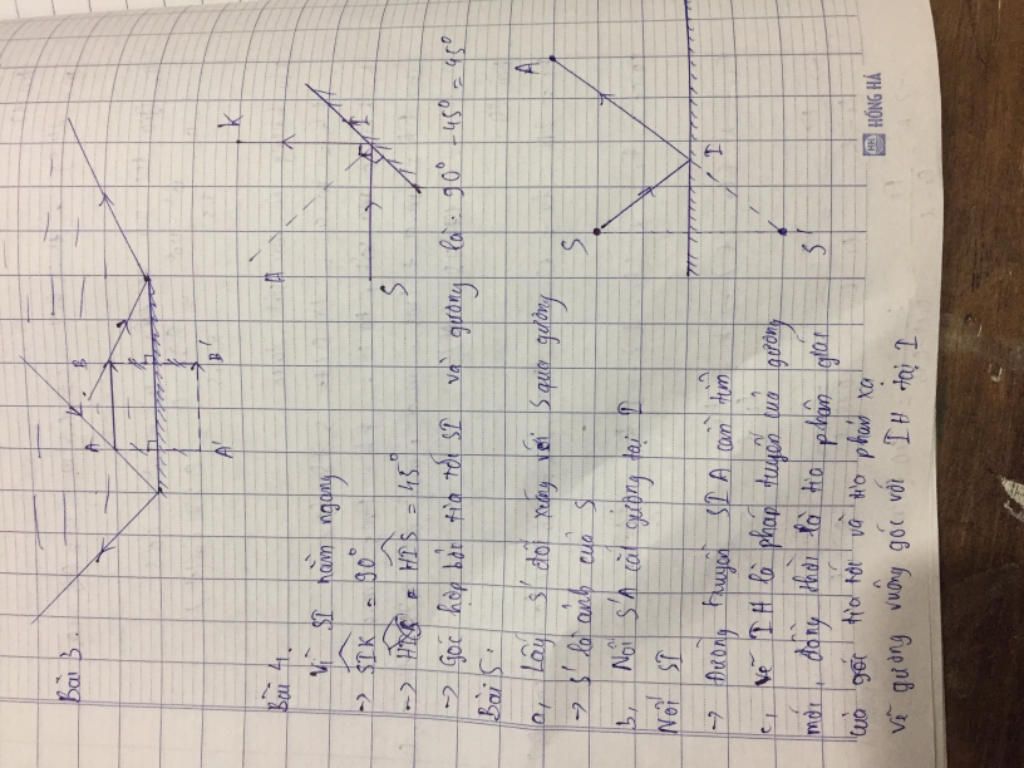 Bài 3.
A
B
A'
B'
Bài 4.
Vì SI nằm ngang
→ SIK = 90°
→ HIK = HIS = 45°
→ Góc hợp bởi tia tới SI và gương là: 90° - 45° = 45°
K
I
S
Bài 5.
a, Lấy S' đối xứng với S qua gương
→ S' là ảnh của S
b, Nối S'A cắt gương tại I
Nối SI
→ Đường truyền SIA cần tìm
c, Vẽ IH là pháp tuyến của gương
mới, đồng thời là tia phân giác
của góc tia tới và tia phản xạ
Vẽ gương vuông góc với IH tại I
S
A
I
S'
HH HỒNG HÀ